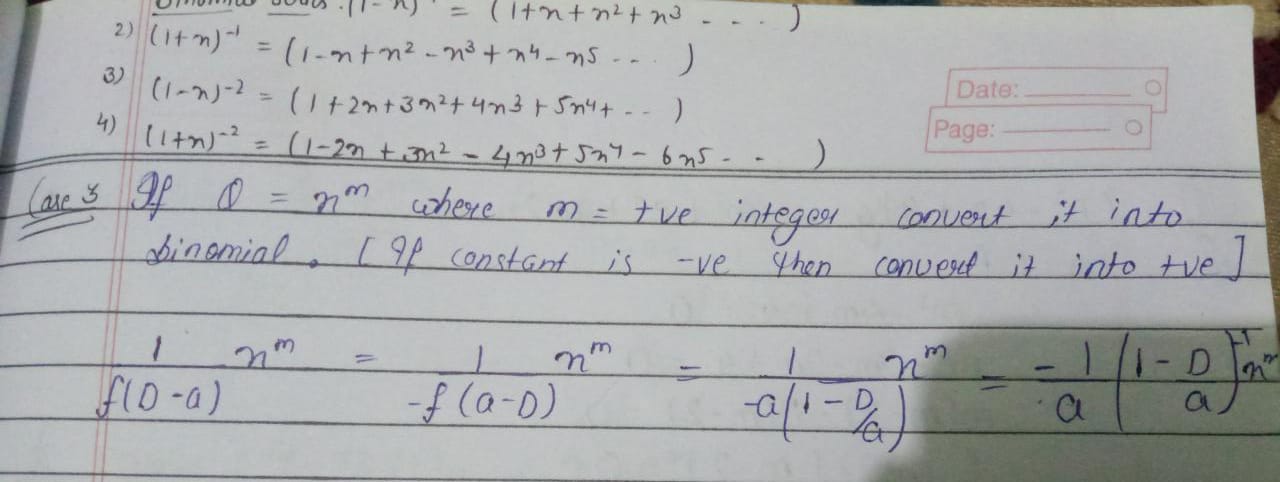 (1-n) = (1+n+n²+n³ - - - )
2) (1+n)⁻¹ = (1-n+n²-n³+n⁴-n5 - - - )
3) (1-n)⁻² = (1+2n+3n²+4n3+5n4+ - - )
4) (1+n)⁻² = (1-2n+3n²-4n3+5n4-6n5 - - )
Date:
Page:
Case 3 If Q = nᵐ where m = +ve integer convert it into
binomial. [If constant is -ve then convert it into +ve]
1/f(D-a) nᵐ = 1/-f(a-D) nᵐ = 1/-a(1-D/a) nᵐ = -1/a (1-D/a)⁻¹ nᵐ